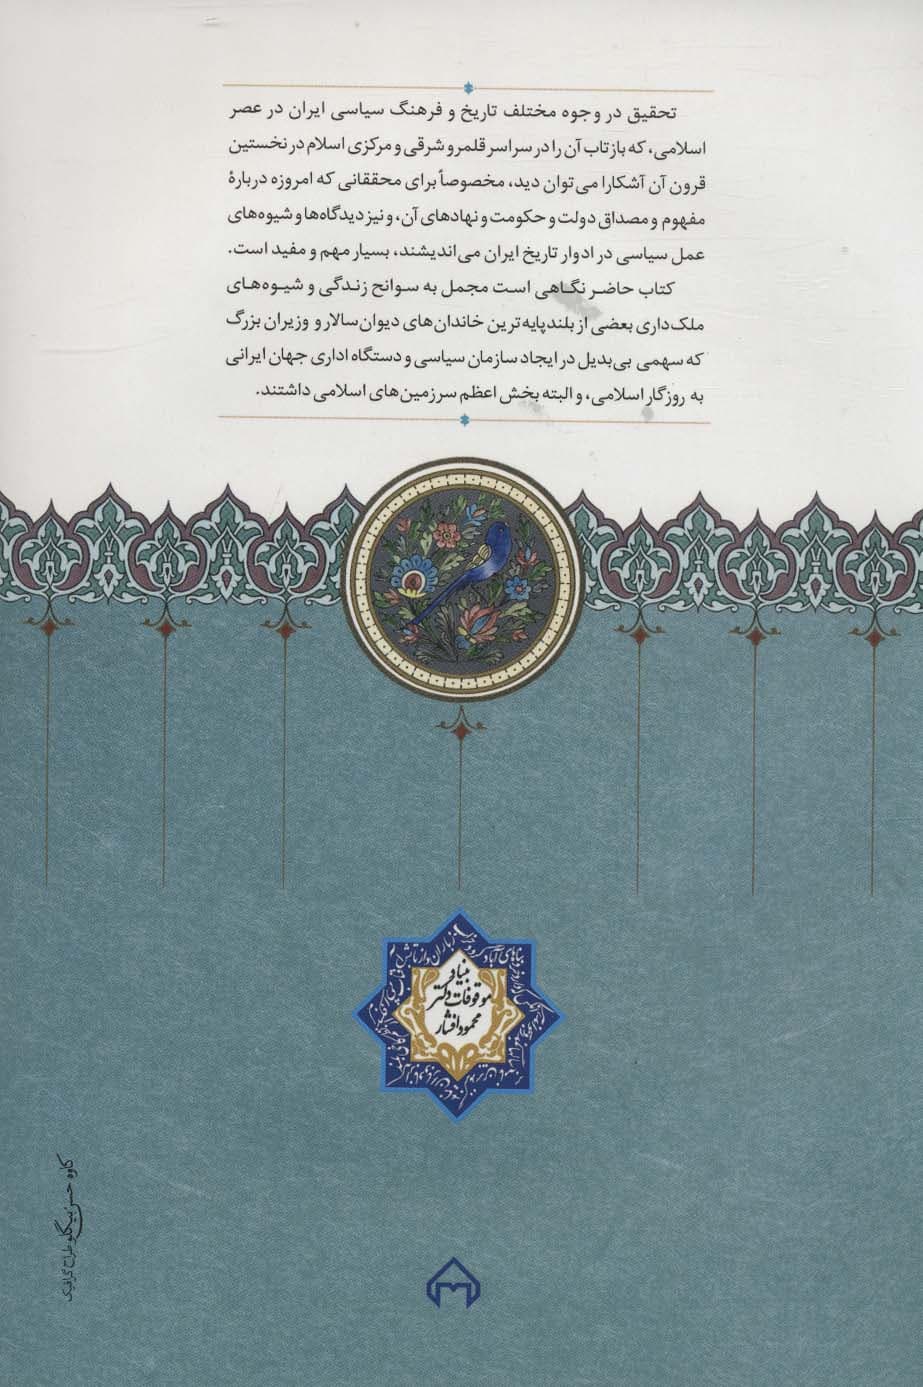 تحقیق در وجوه مختلف تاریخ و فرهنگ سیاسی ایران در عصر
اسلامی، که بازتاب آن را در سراسر قلمرو شرقی و مرکزی اسلام در نخستین
قرون آن آشکارا می‌توان دید، مخصوصاً برای محققانی که امروزه دربارهٔ
مفهوم و مصداق دولت و حکومت و نهادهای آن، و نیز دیدگاه‌ها و شیوه‌های
عمل سیاسی در ادوار تاریخ ایران می‌اندیشند، بسیار مهم و مفید است.
کتاب حاضر نگاهی است مجمل به سوانح زندگی و شیوه‌های
ملک‌داری بعضی از بلندپایه‌ترین خاندان‌های دیوان‌سالار و وزیران بزرگ
که سهمی بی‌بدیل در ایجاد سازمان سیاسی و دستگاه اداری جهان ایرانی
به روزگار اسلامی، و البته بخش اعظم سرزمین‌های اسلامی داشتند.
بناهای آباد گردد خراب
ز باران و از تابش آفتاب
بنیاد
موقوفات دکتر
محمود افشار
کاوه حسن‌بیگلو طراح گرافیک